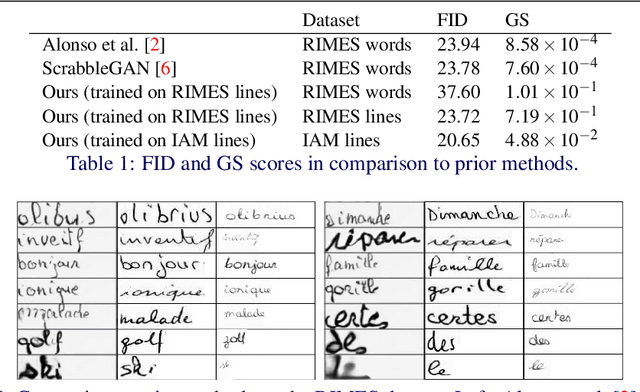 Dataset FID GS
Alonso et al. [2] RIMES words 23.94 8.58 × 10⁻⁴
ScrabbleGAN [6] RIMES words 23.78 7.60 × 10⁻⁴
Ours (trained on RIMES lines) RIMES words 37.60 1.01 × 10⁻¹
Ours (trained on RIMES lines) RIMES lines 23.72 7.19 × 10⁻¹
Ours (trained on IAM lines) IAM lines 20.65 4.88 × 10⁻²
Table 1: FID and GS scores in comparison to prior methods.
olibus olibrius olibrius Dimanche Dimanche Dimanch
inventif inventif réparer réparer répara
bonjour bonjour bonjour famille famille famille
ionique ionique ionique gorille gorille gorille
malade malade certes certes certes
golf golf golf des des des
ski ski le le